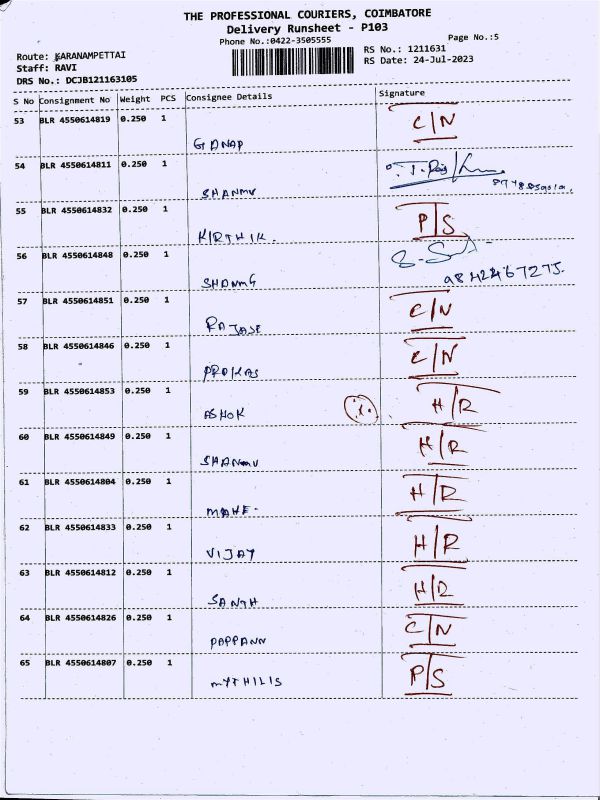 THE PROFESSIONAL COURIERS, COIMBATORE
Delivery Runsheet - P103
Phone No.:0422-3505555
Page No.:5
Route: KARANAMPETTAI
RS No.: 1211631
Staff: RAVI
RS Date: 24-Jul-2023
DRS No.: DCJB121163105
S No Consignment No Weight PCS Consignee Details Signature
53 BLR 4550614819 0.250 1 C/N
GANAP
54 BLR 4550614811 0.250 1
SHANMU
55 BLR 4550614832 0.250 1 P/S
KIRTHIK.
56 BLR 4550614848 0.250 1
SHANMG 9842467275.
57 BLR 4550614851 0.250 1 C/N
RAJASE
58 BLR 4550614846 0.250 1 C/N
PROKAS
59 BLR 4550614853 0.250 1 H/R
ASHOK
60 BLR 4550614849 0.250 1 H/R
SHANMU
61 BLR 4550614804 0.250 1 H/R
MAHE-
62 BLR 4550614833 0.250 1 H/R
VIJAY
63 BLR 4550614812 0.250 1 H/R
SANTH
64 BLR 4550614826 0.250 1 C/N
POPPANN
65 BLR 4550614807 0.250 1 P/S
MYTHILIS